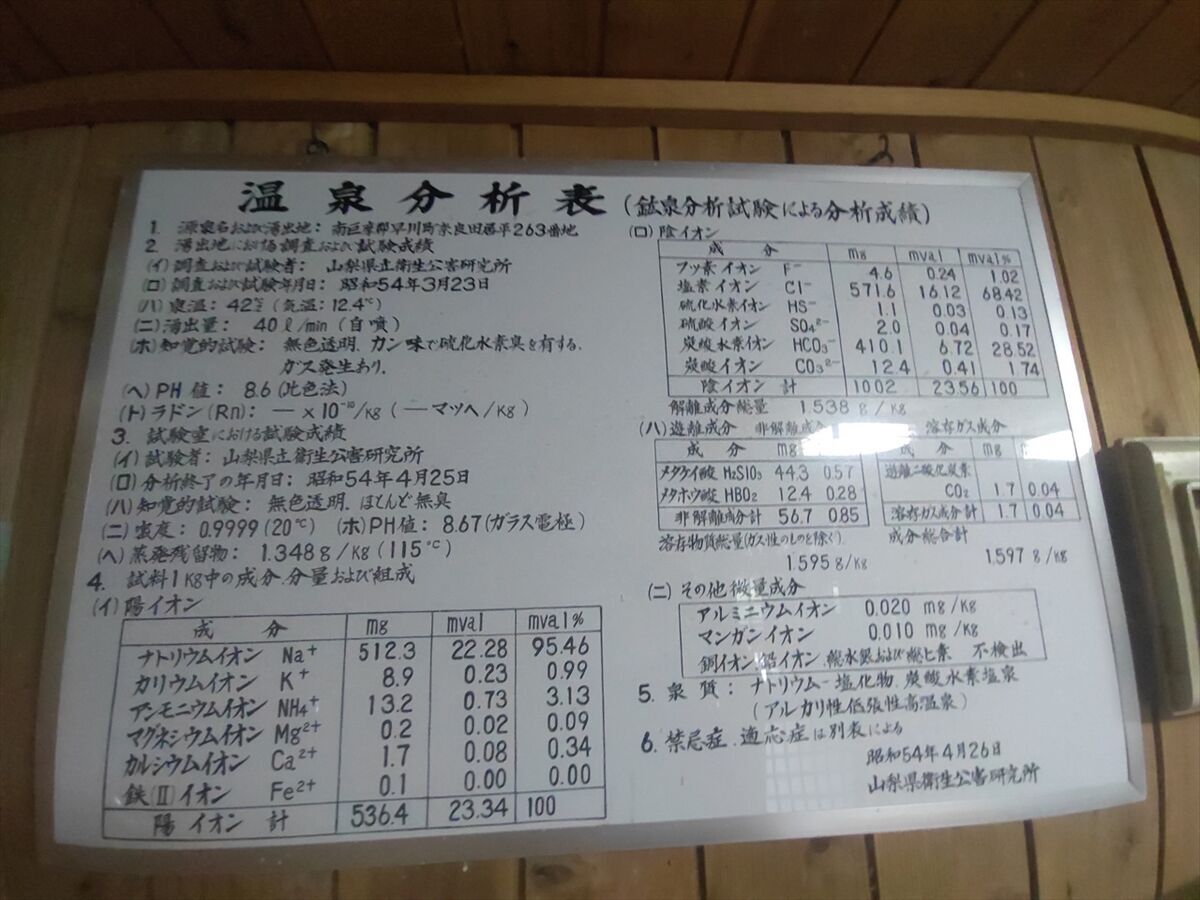 温泉分析表(鉱泉分析試験による分析成績)
1. 源泉名および湧出地: 南巨摩郡早川町奈良田居平263番地
2. 湧出地における調査および試験成績
(イ)調査および試験者: 山梨県立衛生公害研究所
(ロ)調査および試験年月日: 昭和54年3月23日
(ハ)泉温: 42℃ (気温: 12.4℃)
(ニ)湧出量: 40ℓ/min (自噴)
(ホ)知覚的試験: 無色透明、カン味で硫化水素臭を有する、
ガス発生あり。
(ヘ)PH値: 8.6(比色法)
(ト)ラドン(Rn): ― × 10⁻¹⁰/kg (―マッヘ/kg)
3. 試験室における試験成績
(イ)試験者: 山梨県立衛生公害研究所
(ロ)分析終了の年月日: 昭和54年4月25日
(ハ)知覚的試験: 無色透明、ほとんど無臭
(ニ)密度: 0.9999(20℃) (ホ)PH値: 8.67(ガラス電極)
(ヘ)蒸発残留物: 1.348g/kg(115℃)
4. 試料1kg中の成分、分量および組成
(イ)陽イオン
成分 mg mval mval%
ナトリウムイオン Na⁺ 512.3 22.28 95.46
カリウムイオン K⁺ 8.9 0.23 0.99
アンモニウムイオン NH₄⁺ 13.2 0.73 3.13
マグネシウムイオン Mg²⁺ 0.2 0.02 0.09
カルシウムイオン Ca²⁺ 1.7 0.08 0.34
鉄(Ⅱ)イオン Fe²⁺ 0.1 0.00 0.00
陽イオン計 536.4 23.34 100
(ロ)陰イオン
成分 mg mval mval%
フッ素イオン F⁻ 4.6 0.24 1.02
塩素イオン Cl⁻ 571.6 16.12 68.42
硫化水素イオン HS⁻ 1.1 0.03 0.13
硫酸イオン SO₄²⁻ 2.0 0.04 0.17
炭酸水素イオン HCO₃⁻ 410.1 6.72 28.52
炭酸イオン CO₃²⁻ 12.4 0.41 1.74
陰イオン計 1002 23.56 100
解離成分総量 1.538 g/kg
(ハ)遊離成分 非解離成分 溶存ガス成分
成分 mg 成分 mg
メタケイ酸 H₂SiO₃ 44.3 0.57 遊離二酸化炭素
メタホウ酸 HBO₂ 12.4 0.28 CO₂ 1.7 0.04
非解離成分計 56.7 0.85 溶存ガス成分計 1.7 0.04
溶存物質総量(ガス性のものを除く) 成分総合計
1.595 g/kg 1.597 g/kg
(ニ)その他微量成分
アルミニウムイオン 0.020 mg/kg
マンガンイオン 0.010 mg/kg
銅イオン、鉛イオン、総水銀および総ヒ素 不検出
5. 泉質: ナトリウム-塩化物、炭酸水素塩泉
(アルカリ性低張性高温泉)
6. 禁忌症、適応症は別表による
昭和54年4月26日
山梨県衛生公害研究所